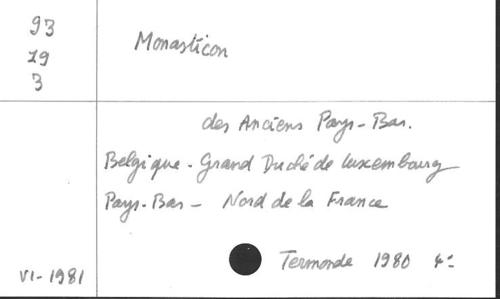 93
19
3
Monasticon
des Anciens Pays-Bas.
Belgique - Grand Duché de Luxembourg
Pays-Bas - Nord de la France
Termonde 1980 4º
VI-1981